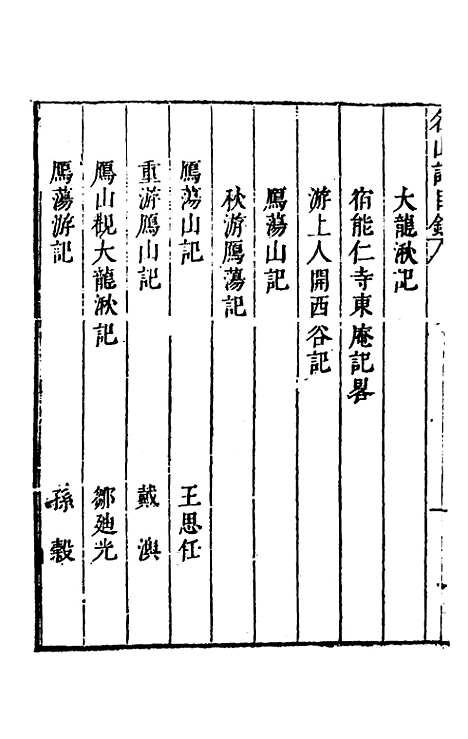 名山記目錄 八
大龍湫記
宿能仁寺東庵記畧
游上人開西谷記
鴈蕩山記
秋游鴈蕩記
鴈蕩山記 王思任
重游鴈山記 戴澳
鴈山觀大龍湫記 鄒廸光
鴈蕩游記 孫縠
一